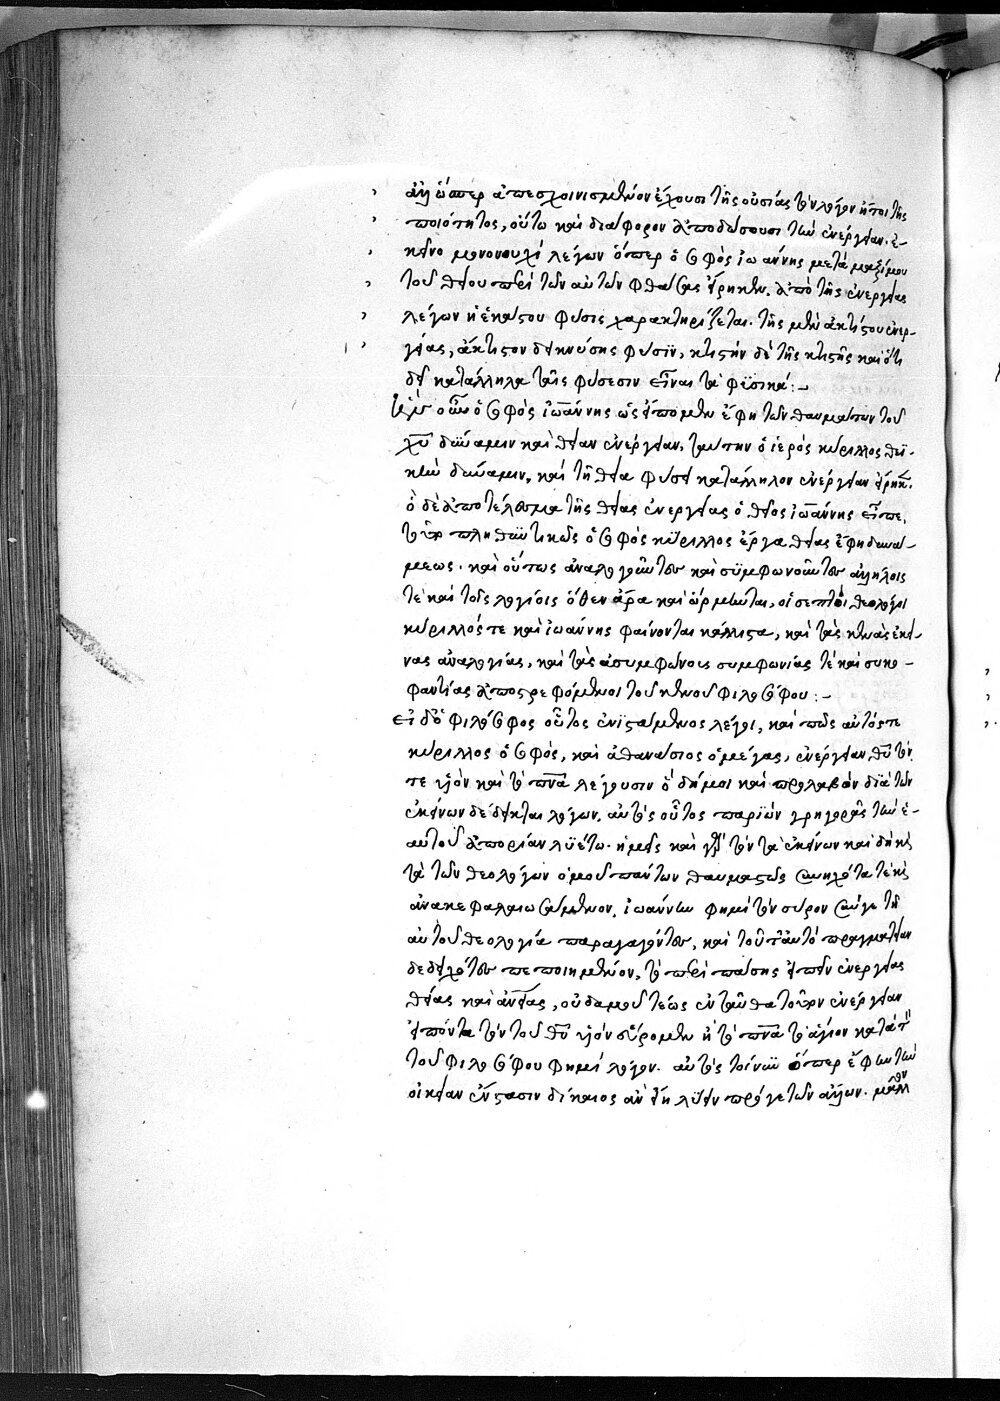 ἀλλ' ὥσπερ ἀπεσχοινισμένον ἔχουσι τῆς οὐσίας τὸν λόγον ἤτοι τῆς
ποιότητος, οὕτω καὶ διάφορον ἀποδώσουσι τὴν ἐνέργειαν. ἐ-
κεῖνο μονονουχὶ λέγων ὅπερ ὁ σοφὸς ἰωάννης μετὰ μαξίμου
τοῦ θείου περὶ τῶν αὐτῶν φθάσας εἴρηκεν. ἀπὸ τῆς ἐνεργείας
λέγων ἡ ἑκάστου φύσις χαρακτηρίζεται. τῆς μὲν ἀκτίστου ἐνερ-
γείας, ἄκτιστον δεικνύσης φύσιν, κτιστὴν δὲ τῆς κτιστῆς καὶ ὅτι
δεῖ κατάλληλα ταῖς φύσεσιν εἶναι τὰ φυσικά :-
οὖν ὁ σοφὸς ἰωάννης ὡς εἴπομεν ἔφη τῶν θαυμάτων τοῦ
χυ δύναμιν καὶ θείαν ἐνέργειαν, ταύτην ὁ ἱερὸς κύριλλος θεϊ-
κὴν δύναμιν, καὶ τῇ θεία φύσει κατάλληλον ἐνέργειαν εἴρηκ.
ὃ δὲ ἀποτέλεσμα τῆς θείας ἐνεργείας ὁ θεῖος ἰωάννης εἶπε,
τοῦτο πληθυντικῶς ὁ σοφὸς κύριλλος ἔργα θείας ἔφη δυνά-
μεως. καὶ οὕτως ἀναλογοῦντες καὶ συμφωνοῦντες ἀλλήλοις
τὲ καὶ τοῖς λογίοις ὅθεν ἄρα καὶ ὥρμηνται, οἱ σεπτοὶ θεολόγοι
κύριλλός τε καὶ ἰωάννης φαίνονται κάλλιστα, καὶ τὰς κενὰς ἐκεί-
νας ἀναλογίας, καὶ τὰς ἀσυμφώνους συμφωνίας τὲ καὶ συκο-
φαντίας ἀποστρεφόμενοι τοῦ κενοῦ φιλοσόφου :-
εἰ δ' ὁ φιλόσοφος οὗτος ἐνιστάμενος λέγοι, καὶ πῶς αὐτός τε
κύριλλος ὁ σοφὸς, καὶ ἀθανάσιος ὁ μέγας, ἐνέργειαν θυ τόν
τε υἱὸν καὶ τὸ πνα λέγουσιν ὃ δήμοι καὶ προλαβὸν διὰ τῶν
ἐκείνων δέδεικται λόγων, αὐτὸς οὗτος παριὼν γρηγορᾶς τὴν ἑ-
αυτοῦ ἀπορίαν λυέτω. ἡμεῖς καὶ τὸν τὰ ἐκείνων καὶ δὴ καὶ
τὰ τῶν θεολόγων ὁμοῦ πάντων θαυμαστῶς συνηχότα τὲ καὶ
ἀνακεφαλαιωσάμενον, ἰωάννην φημὶ τὸν σύρον τῇ
αὐτοῦ θεολογία παραγαγόντες, καὶ πραγματείαν
δεδειχότες πεποιημένον, τὸ περὶ πάσης εἰπεῖν ἐνεργείας
θείας καὶ ἀνίνας, οὐδαμοῦ τέως ἐνταῦθα τοῦτον ἐνέργειαν
εἰπόντα τὸν τοῦ θυ υἱὸν εὕρομεν ἢ τὸ πνα τὸ ἅγιον κατὰ τὸν
τοῦ φιλοσόφου φημὶ λόγον. αὐτὸς τοίνυν ὅσπερ ἔφην τὴν
οἰκείαν ἔνστασιν δίκαιος ἂν εἴη λύειν πρό γε τῶν ἄλλων. μᾶλλον